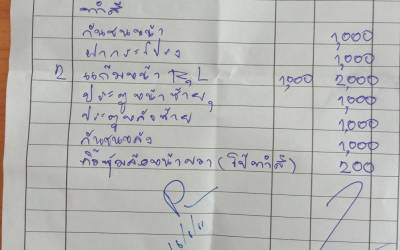 ทำสี
กันชนหน้า 1,000
ฝากระโปรง 1,000
2 แก้มหน้า R, L 1,000 2,000
ประตูหน้าซ้าย 1,000
ประตูหลังซ้าย 1,000
กันชนหลัง 1,000
คิ้วซุ้มล้อหน้าขวา (โป๊ทำสี) 200